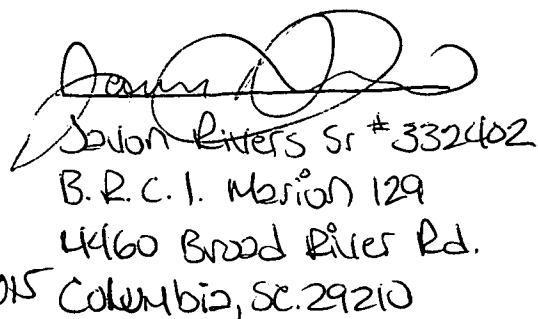 Javon Rivers Sr #332402
B.R.C.I. Marion 129
4460 Broad River Rd.
Columbia, SC. 29210